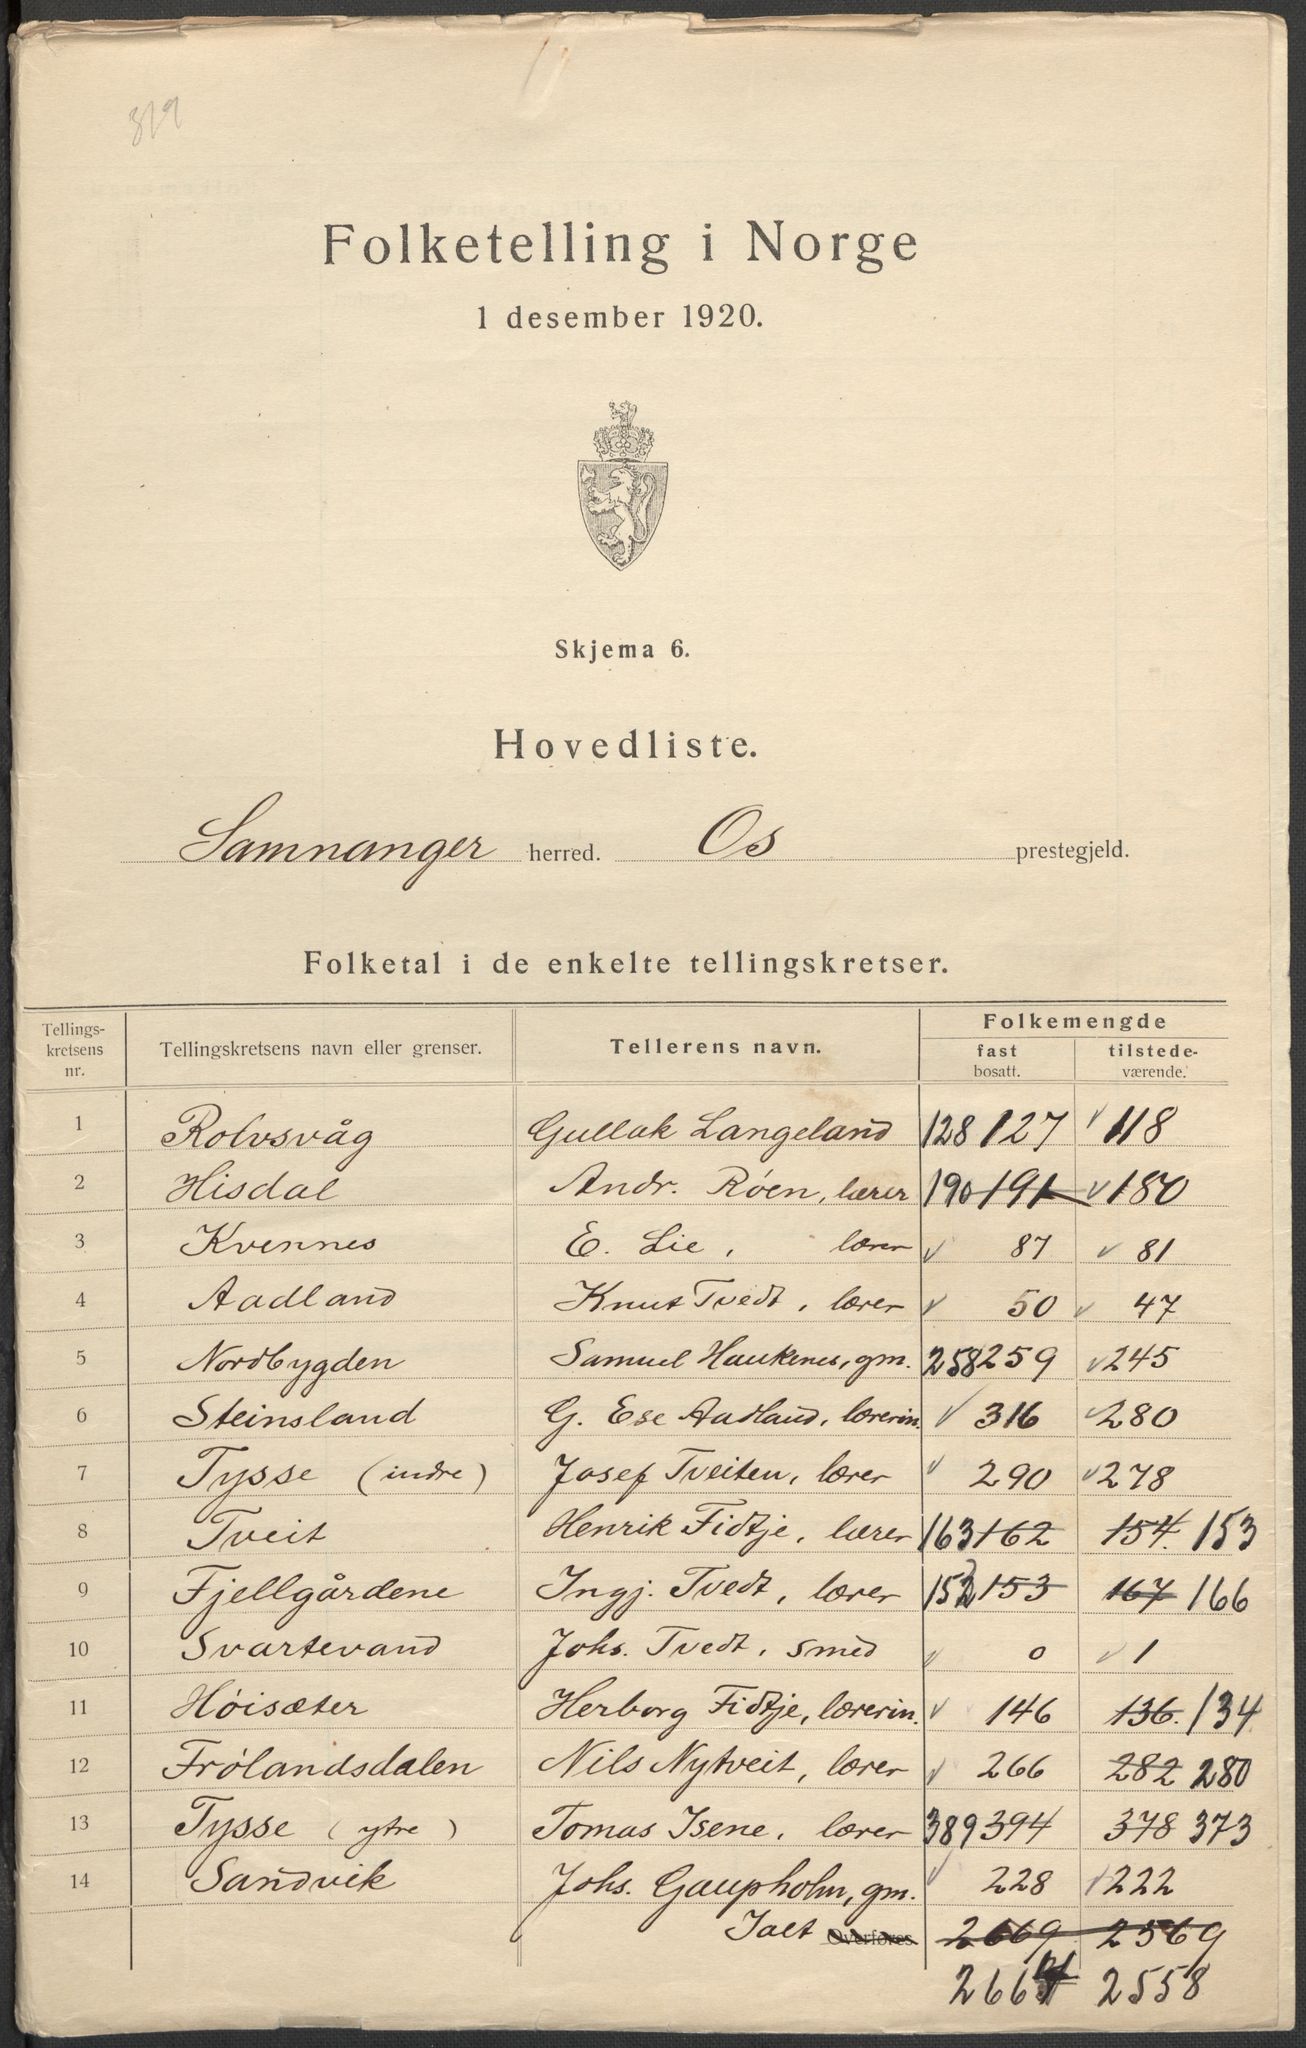 319
Folketelling i Norge
1 desember 1920.
Skjema 6.
Hovedliste.
Samnanger herred. Os prestegjeld.
Folketal i de enkelte tellingskretser.
Tellings-kretsens nr. Tellingskretsens navn eller grenser. Tellerens navn. Folkemengde fast bosatt. tilstede-værende.
1 Rolvsvåg Gullak Langeland 128 127 118
2 Hisdal Andr. Röen, lærer 190 191 180
3 Kvennes E. Lie, lærer 87 81
4 Aadland Knut Tvedt, lærer 50 47
5 Nordbygden Samuel Haukenes, gm. 258 259 245
6 Steinsland G. Ese Aadland, lærerin. 316 280
7 Tysse (indre) Josef Tveiten, lærer 290 278
8 Tveit Henrik Fidtje, lærer 163 162 154. 153
9 Fjellgårdene Ingj. Tvedt, lærer 152 153 167 166
10 Svartevand Johs. Tvedt, smed 0 1
11 Höisæter Herborg Fidtje, lærerin. 146 136. 134
12 Frölandsdalen Nils Nytveit, lærer 266 282 280
13 Tysse (ytre) Tomas Isene, lærer 389 394 378 373
14 Sandvik Johs. Gaupholm, gm. 228 222
Ialt Overføres 2669 2569
266 2558